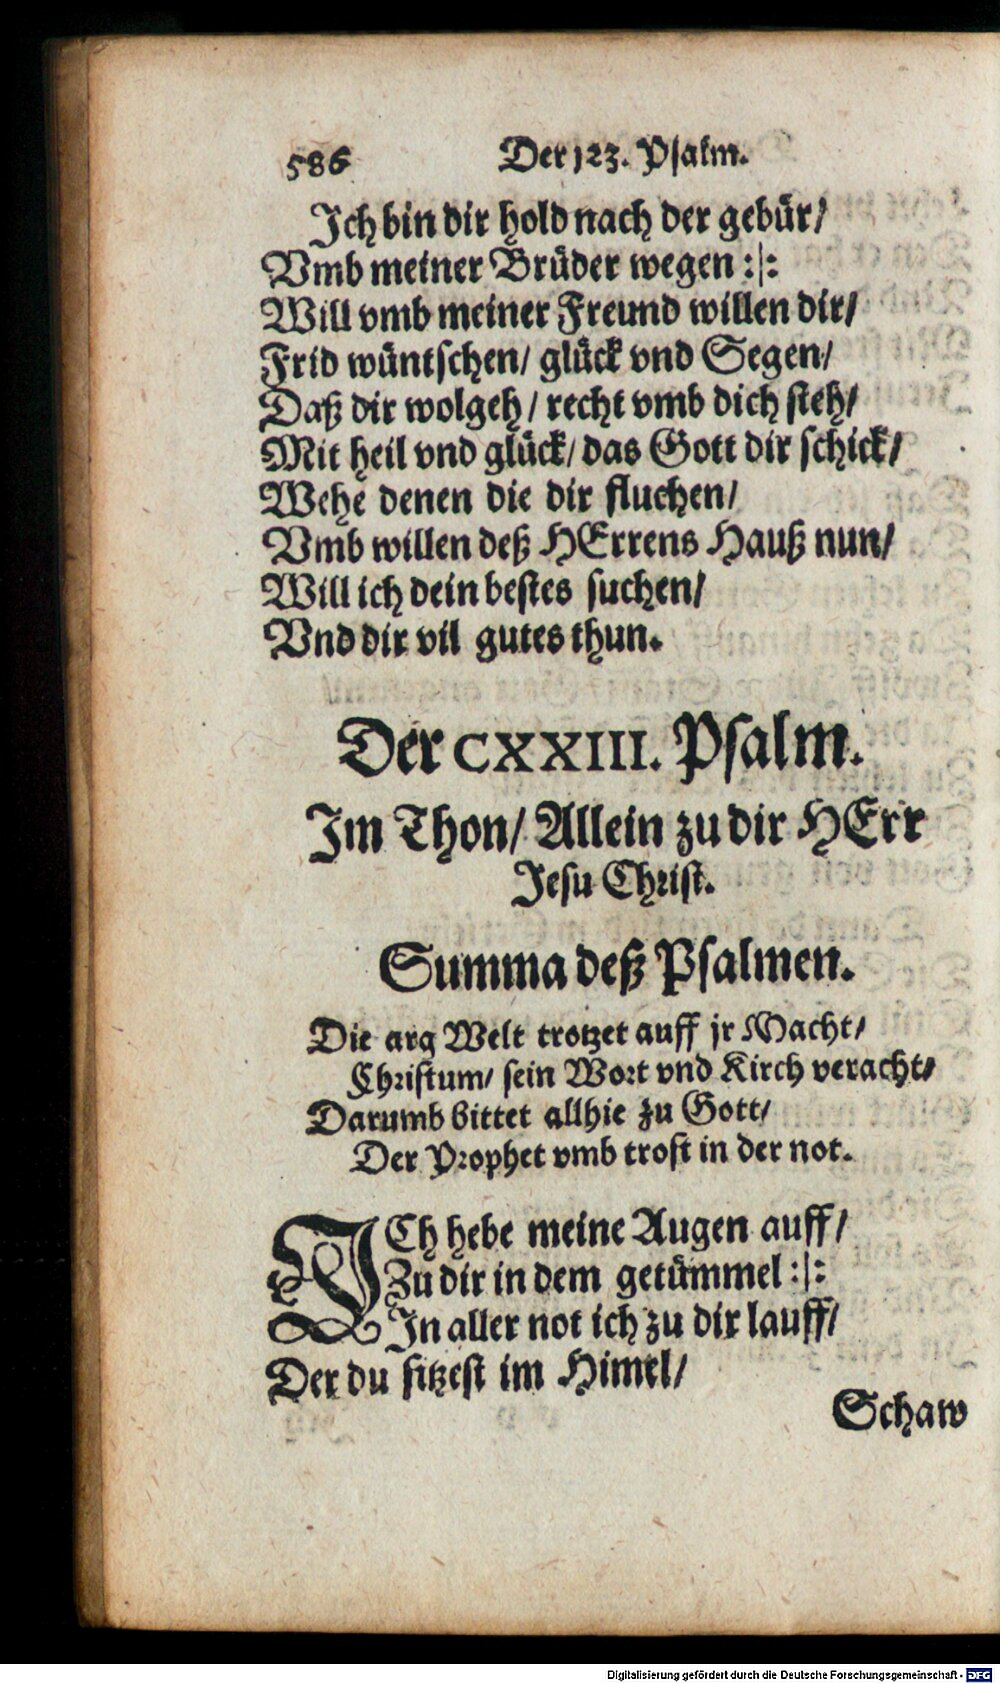 586 Der 123. Psalm.
Ich bin dir hold nach der gebür/
Vmb meiner Brüder wegen :|:
Will vmb meiner Freund willen dir/
Frid wüntschen/ glück vnd Segen/
Daß dir wolgeh/ recht vmb dich steh/
Mit heil vnd glück/ das Gott dir schick/
Wehe denen die dir fluchen/
Vmb willen deß HErrens Hauß nun/
Will ich dein bestes suchen/
Vnd dir vil gutes thun.
Der CXXIII. Psalm.
Im Thon/ Allein zu dir HErr
Jesu Christ.
Summa deß Psalmen.
Die arg Welt trotzet auff jr Macht/
Christum/ sein Wort vnd Kirch veracht/
Darumb bittet allhie zu Gott/
Der Prophet vmb trost in der not.
ICh hebe meine Augen auff/
Zu dir in dem getümmel :|:
In aller not ich zu dir lauff/
Der du sitzest im Himel/
Schaw
Digitalisierung gefördert durch die Deutsche Forschungsgemeinschaft - DFG